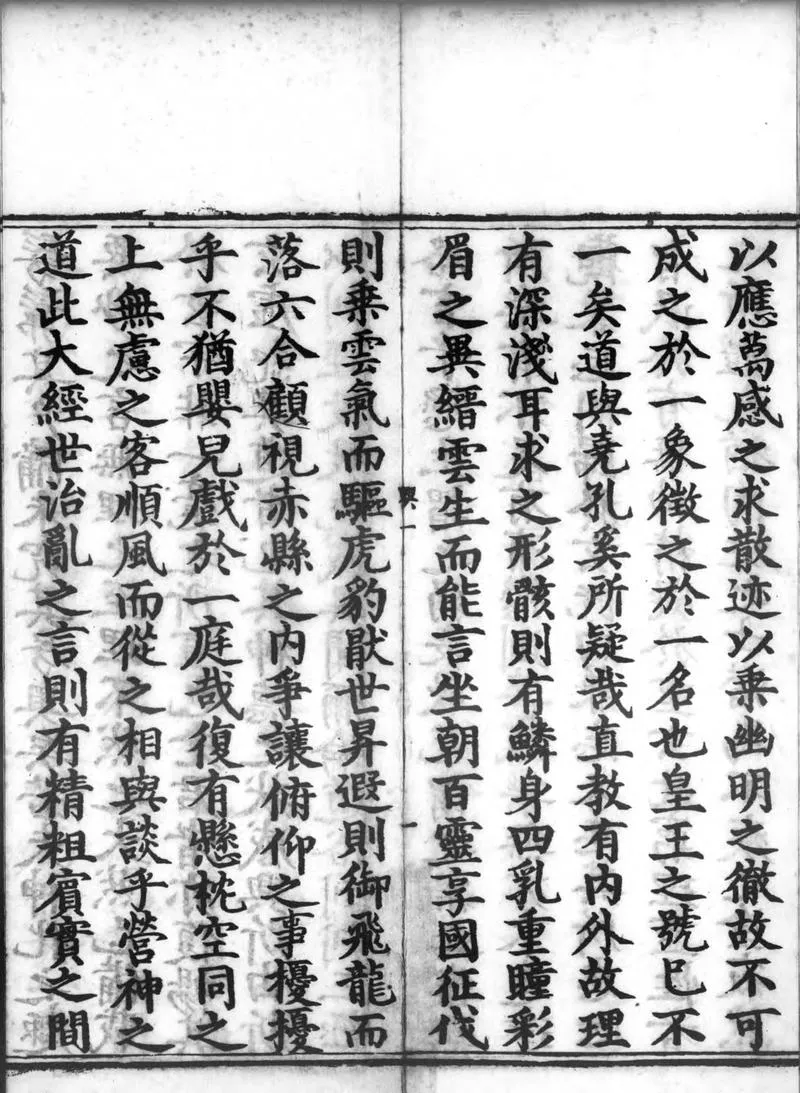 以應萬感之求散迹以乗幽明之徹故不可
成之於一象徵之於一名也皇王之號已不
一矣道與堯孔奚所疑哉直教有内外故理
有深淺耳求之形骸則有鱗身四乳重瞳彩
眉之異縉雲生而能言坐朝百靈享國征伐
則乗雲氣而驅虎豹猒世昇遐則御飛龍而
落六合顧視赤縣之内爭讓俯仰之事擾擾
乎不猶嬰兒戲於一庭哉復有懸枕空同之
上無慮之客順風而從之相與談乎營神之
道此大經世治亂之言則有精粗賓實之間